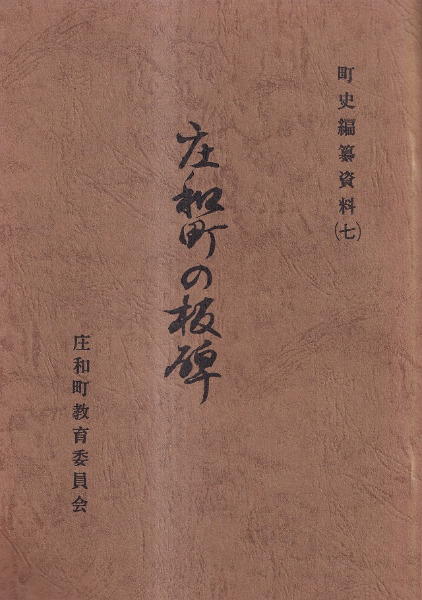 町史編纂資料(七)
庄和町の板碑
庄和町教育委員会